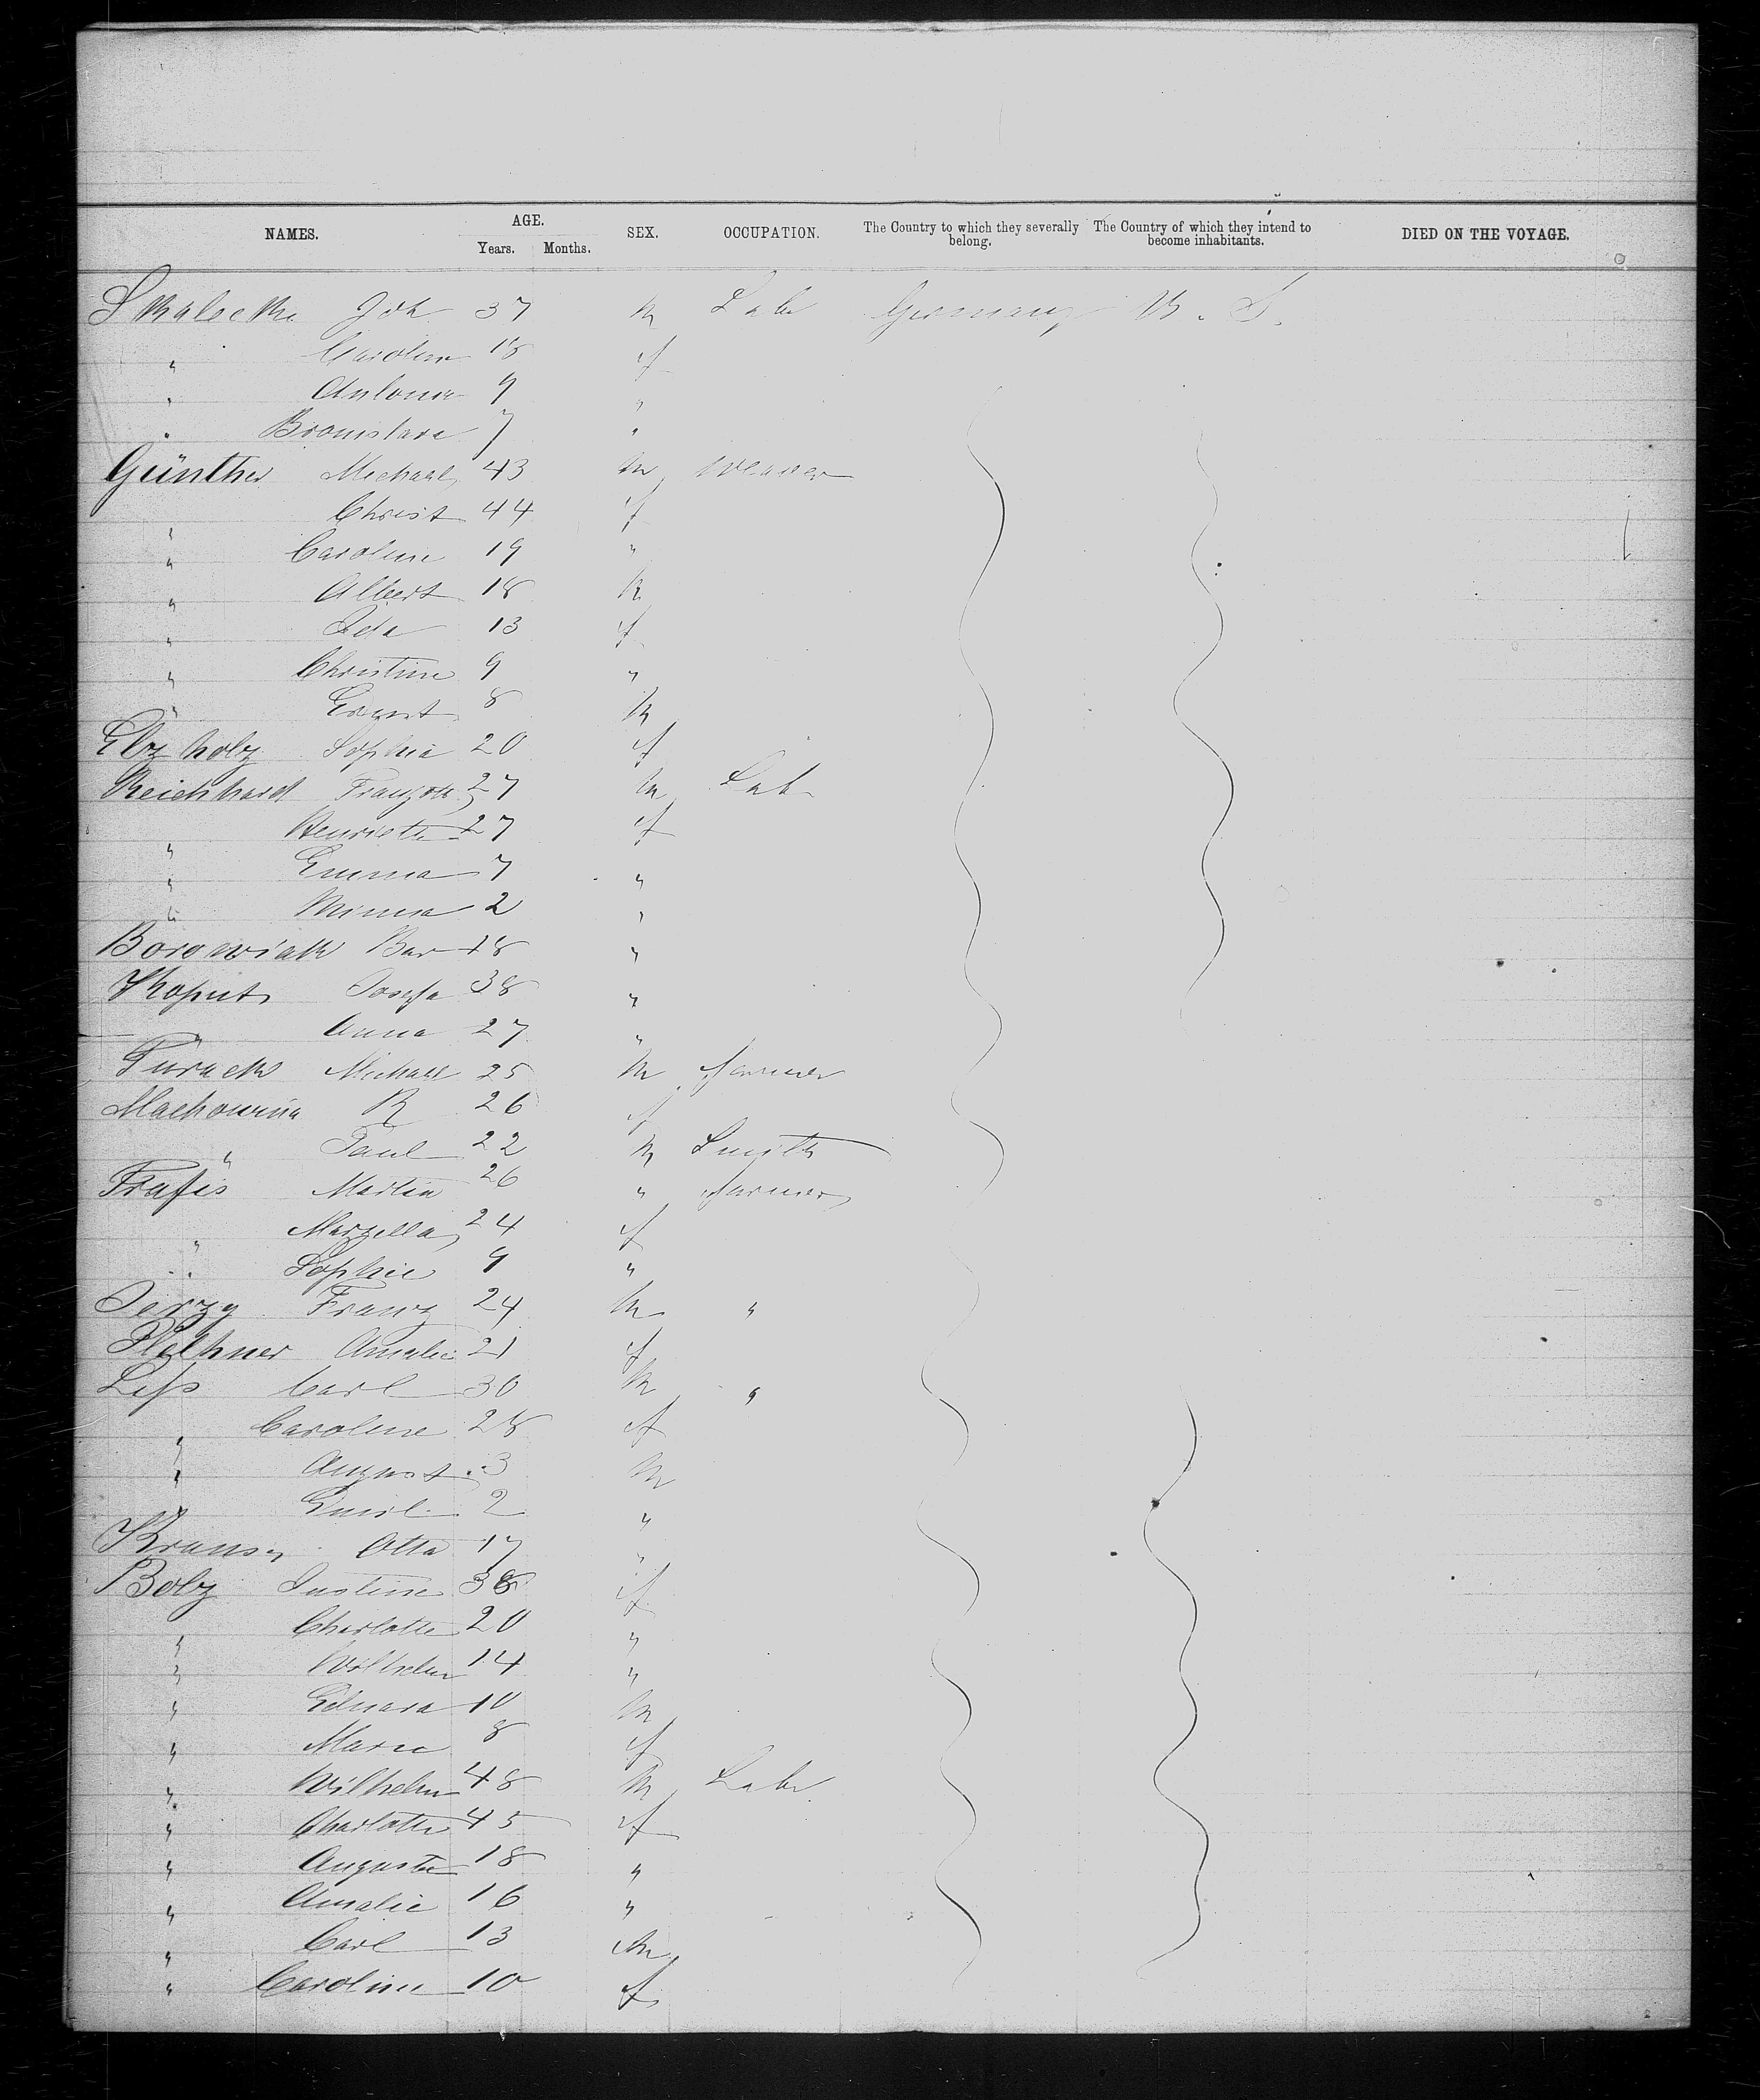 NAMES. AGE. Years. Months. SEX. OCCUPATION. The Country to which they severally belong. The Country of which they intend to become inhabitants. DIED ON THE VOYAGE.
Joh 37 m Labr Germany U. S.
" Carolin 18 f
" Antonia 9 "
" Bronislava 7 "
Günther Michael 43 m Weaver
" Christ 44 f
" Caroline 19 "
" Albert 18 m
" Ida 13 f
" Christine 9 "
" Ernst 8 m
Sophia 20 f
Reichhard 27 m Lab
" Henriette 27 f
" Emma 7 "
" Minna 2 "
Borowiak Bar 18 "
Koput Josefa 38 "
" Anna 27 "
Turack Michael 25 m farmer
Machowina R 26 f
" Paul 22 m Smith
Martin 26 " farmer
" Marzella 24 f
" Sophie 9 "
Jerzy Franz 24 m "
Amalie 21 f
Less Carl 30 m "
" Caroline 28 f
" August 3 m
" Emil 2 "
Krause Otto 17 "
Bolz Justine 38 f
" Charlotte 20 "
" Wilhelm 14 "
" Eduard 10 m
" Marie 8 f
" Wilhelm 48 m Labr
" Charlotte 45 f
" Auguste 18 "
" Amalie 16 "
" Carl 13 m
" Caroline 10 f